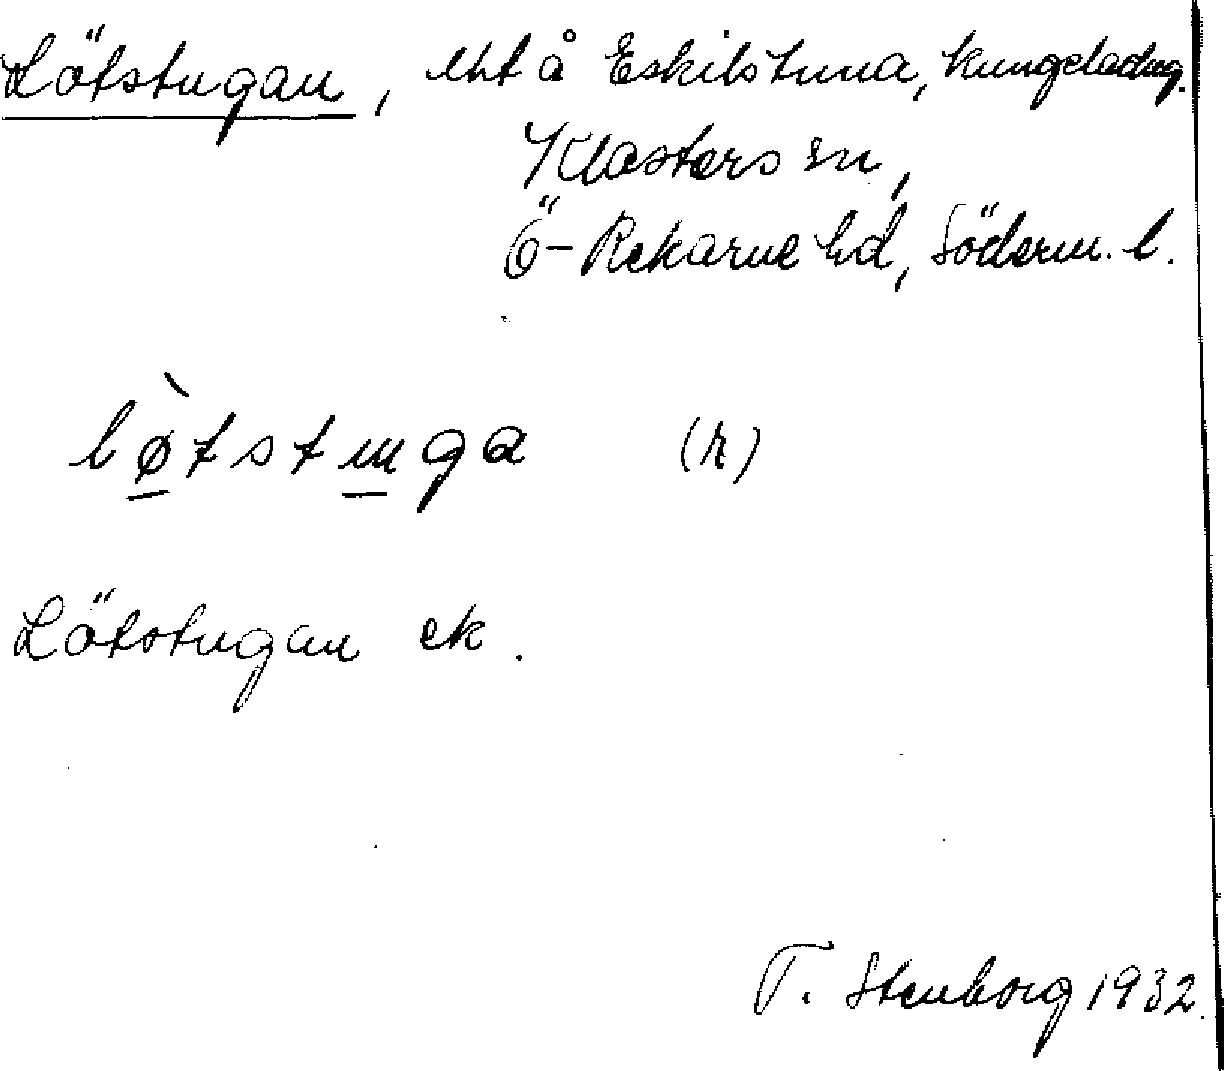 Lötstugan, lht å Eskilstuna, kungsladug.
Klosters sn,
Ö-Rekarne hd, Söderm. l.
lø̀tstuga (r)
Lötstugan ek.
T. Stenborg 1932.